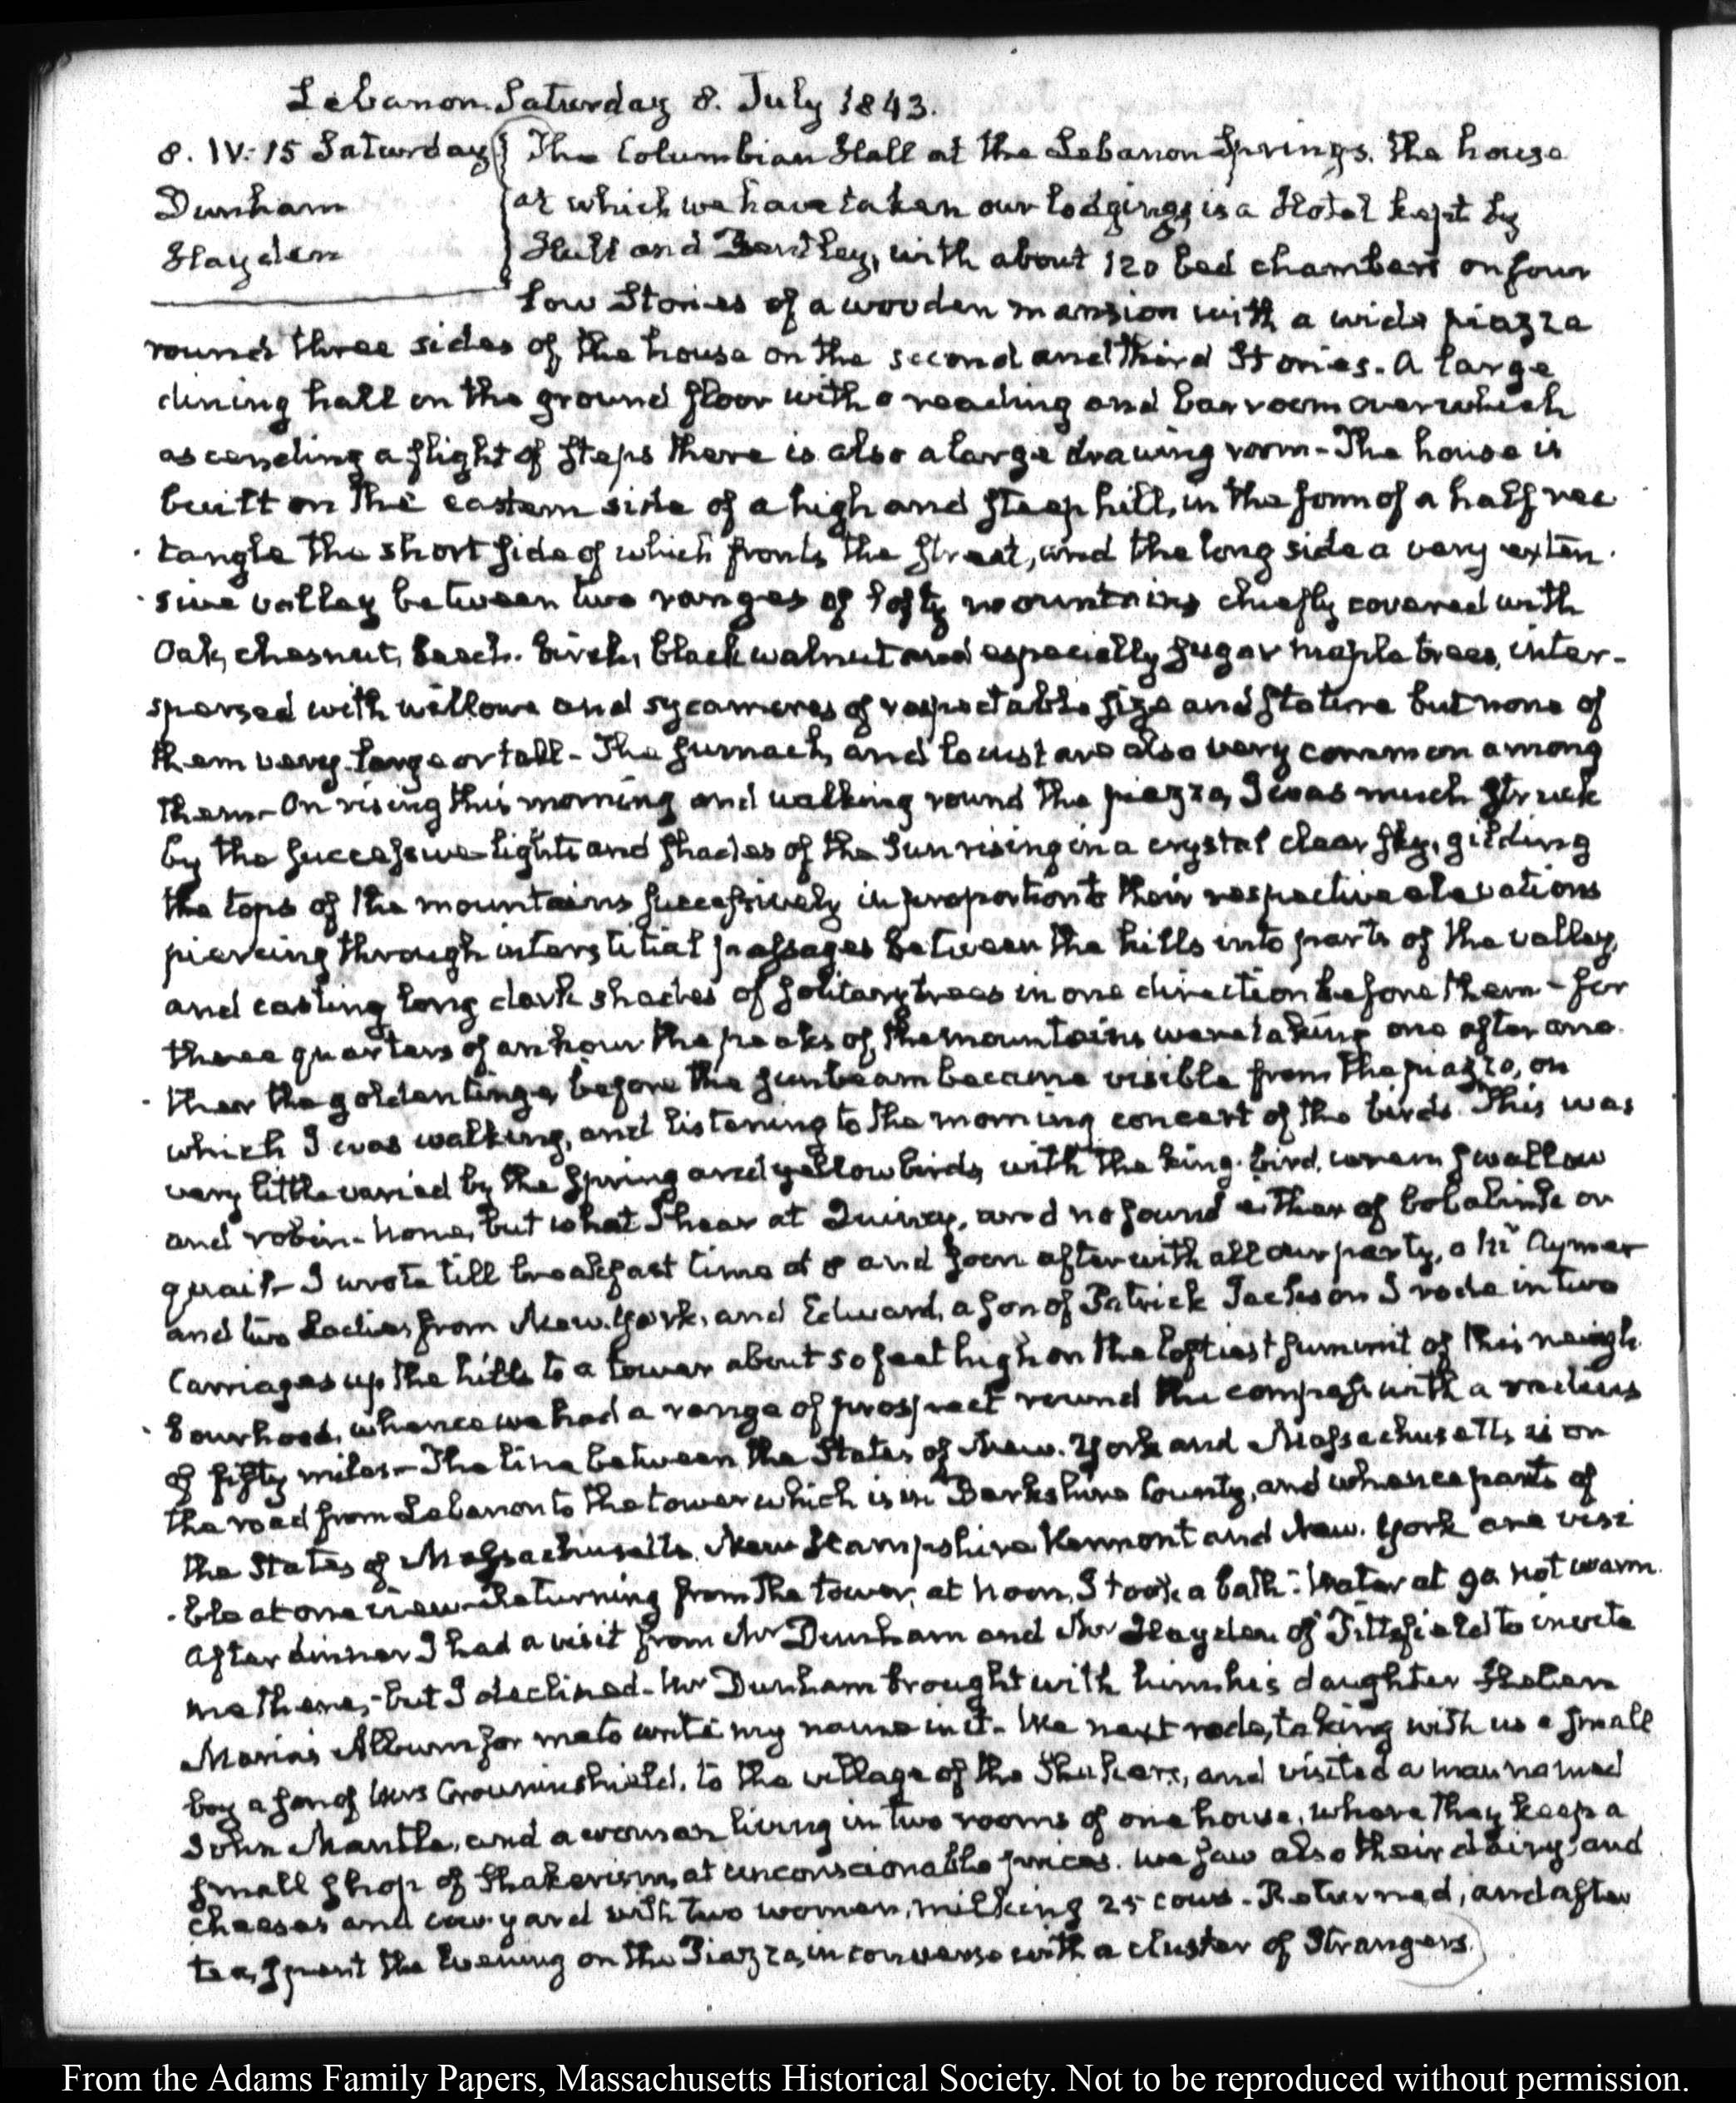 Lebanon Saturday 8. July 1843.
8. IV:15 Saturday
Dunham
Hayden
The Columbian Hall at the Lebanon Springs. The house
at which we have taken our lodgings, is a Hotel kept by
Hull and Bentley, with about 120 bed chambers on four
low Stories of a wooden mansion with a wide piazza
round three sides of the house on the second and third Stories. A large
dining hall on the ground floor with a reading and bar room over which
ascending a flight of steps there is also a large drawing room - The house is
built on the eastern side of a high and steep hill, in the form of a half rec
tangle the short side of which fronts the street, and the long side a very exten
sive valley between two ranges of lofty mountains chiefly covered with
Oak, chesnut, beech. birch, black walnut and especially sugar maple trees, inter-
spersed with willows and sycamores of respectable size and stature but none of
them very large or tall - The sumach, and locust are also very common among
them - On rising this morning and walking round the piazza, I was much struck
by the successive lights and shades of the Sun rising in a crystal clear sky, gilding
the tops of the mountains successively in proportion to their respective elevations
piercing through interstitial passages between the hills into parts of the valley,
and casting long dark shades of solitary trees in one direction before them - for
three quarters of an hour the peaks of the mountains were taking one after ano
ther the golden tinge, before the sunbeam became visible from the piazza, on
which I was walking, and listening to the morning concert of the birds. This was
very little varied by the Spring and yellow birds, with the king-bird, wren, swallow
and robin - none, but what I hear at Quincy, and no sound either of bobalink or
quail - I wrote till breakfast time at 8 and soon after with all our party, a Mr Aymar
and two Ladies from New-York, and Edward, a son of Patrick Jackson I rode in two
Carriages up the hills to a tower about 50 feet high on the loftiest summit of this neigh
bourhood, whence we had a range of prospect round the compass with a radius
of fifty miles - The line between the States of New-York and Massachusetts is on
the road from Lebanon to the tower which is in Berkshire County, and whence parts of
the States of Massachusetts, New Hampshire Vermont and New-York are visi
ble at one view - Returning from the tower, at noon, I took a bath - Water at 90 not warm.
After dinner I had a visit from Mr Dunham and Mr Hayden of Pittsfield to invite
me there, - but I declined - Mr Dunham brought with him his daughter Helen
Maria's Album for me to write my name in it - We next rode, taking with us a small
boy a son of Mrs Crowninshield, to the village of the Shakers, and visited a man named
John Mantle, and a woman living in two rooms of one house, where they keep a
small shop of Shakerism, at unconscionable prices. We saw also their dairy, and
cheeses and cow-yard with two women, milking 25 cows - Returned, and after
tea, spent the Evening on the Piazza, in converse with a cluster of Strangers.
From the Adams Family Papers, Massachusetts Historical Society. Not to be reproduced without permission.